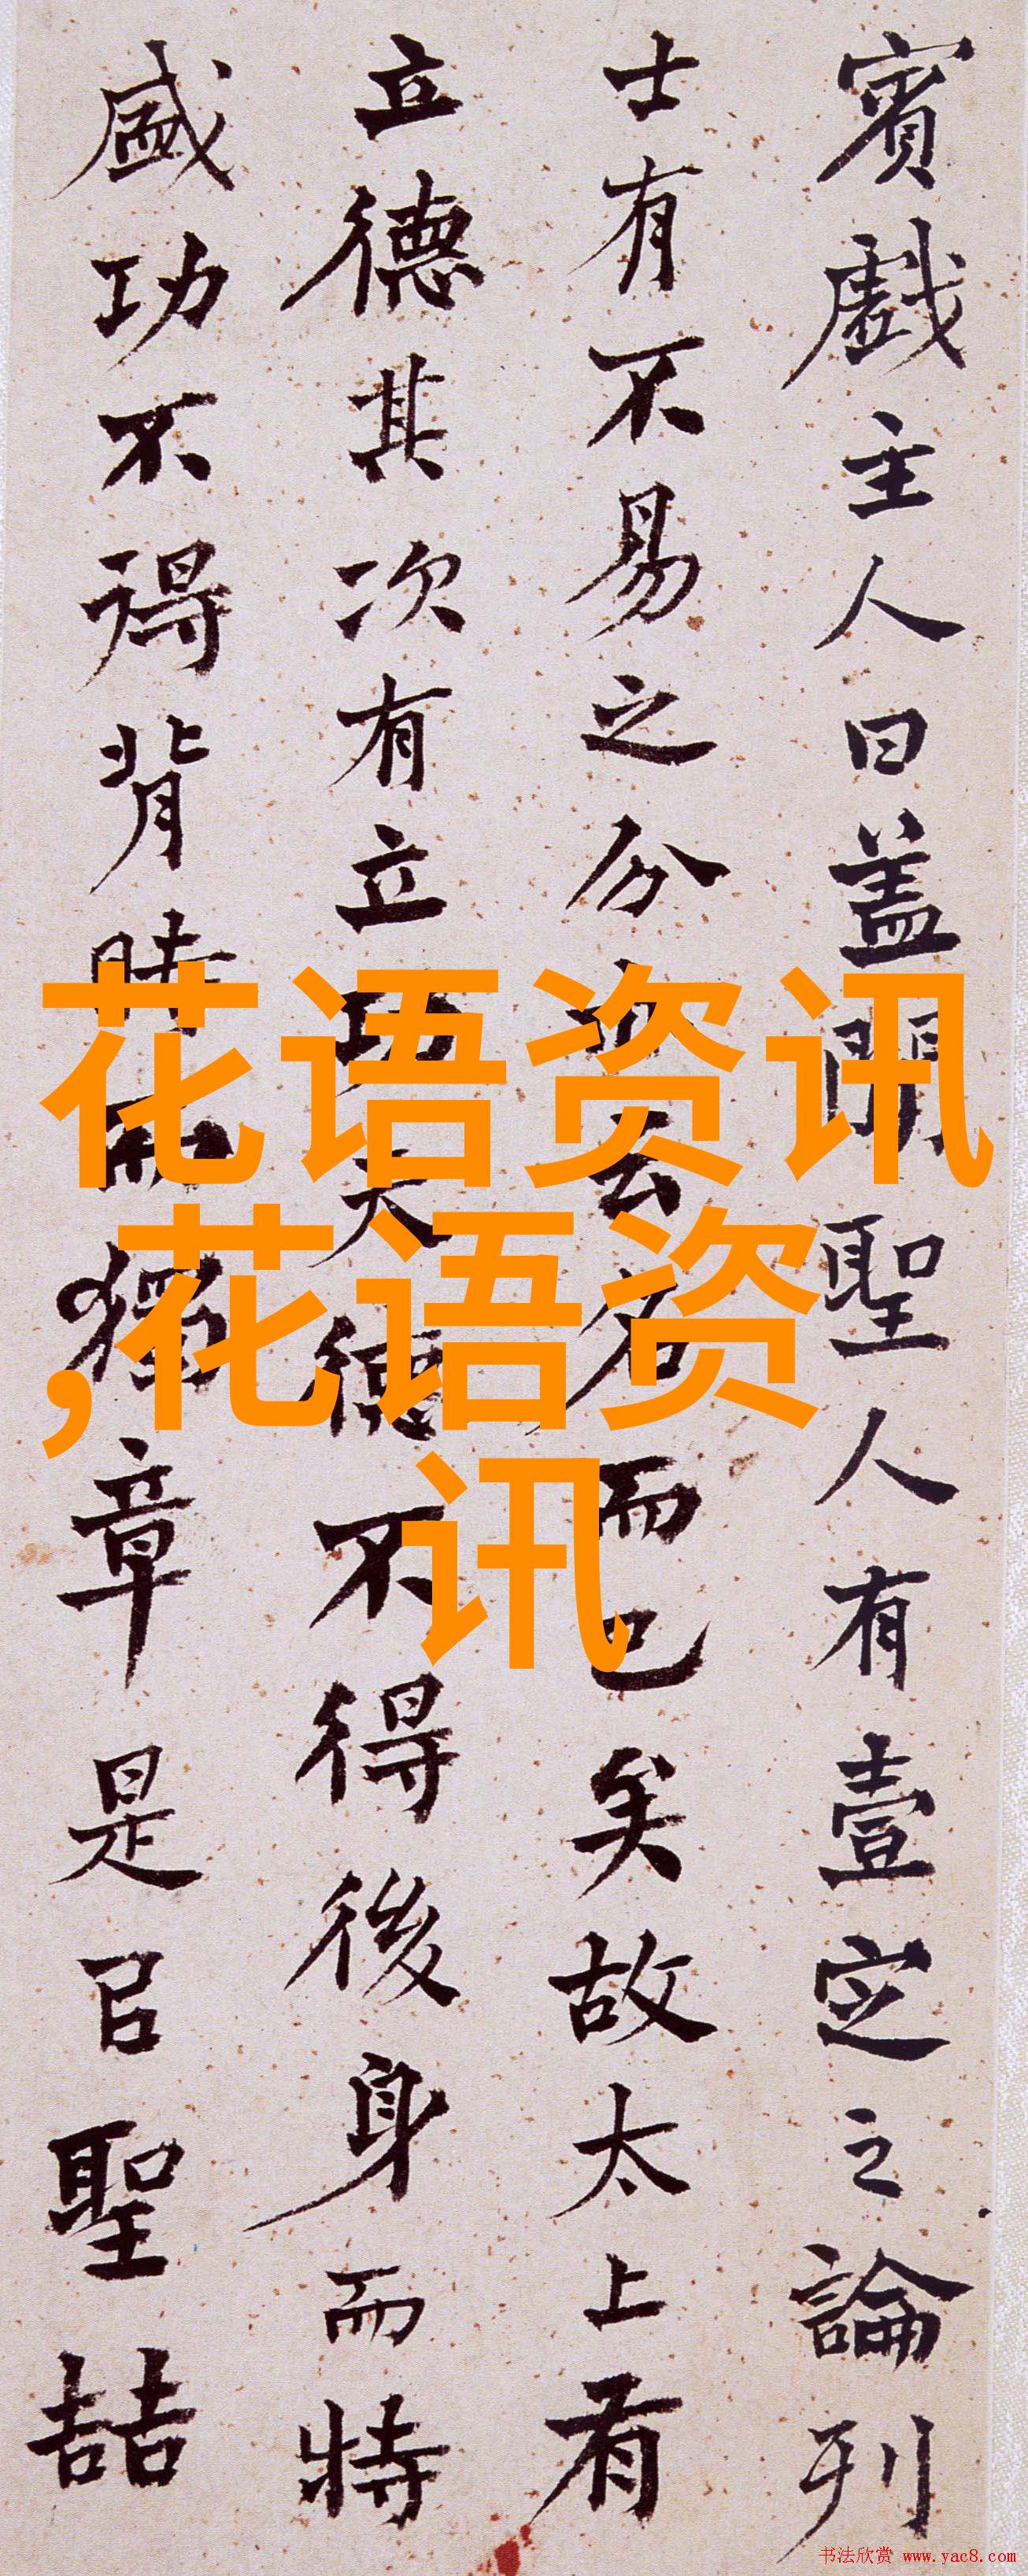 賓戲主人曰盖聞聖人有壹定之論列
士有不易之分亦云名而已矣故太上有
立德其次有立功夫德不得後身而特
盛功不得背時而獨章是㠯聖喆
花语资讯
,花语资
讯
书法欣赏 www.yac8.com